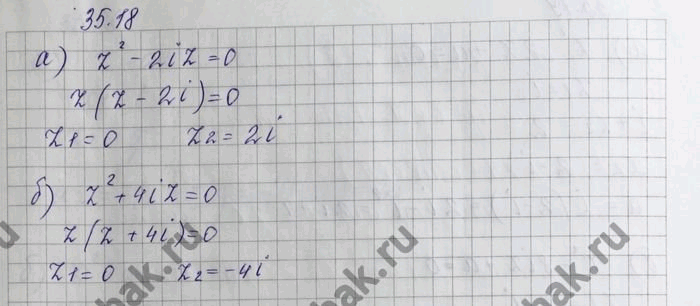 35.18
а) z² - 2iz = 0
z(z - 2i) = 0
z1 = 0 z2 = 2i
б) z² + 4iz = 0
z(z + 4i) = 0
z1 = 0 z2 = -4i
bak.ru
bak.ru
u